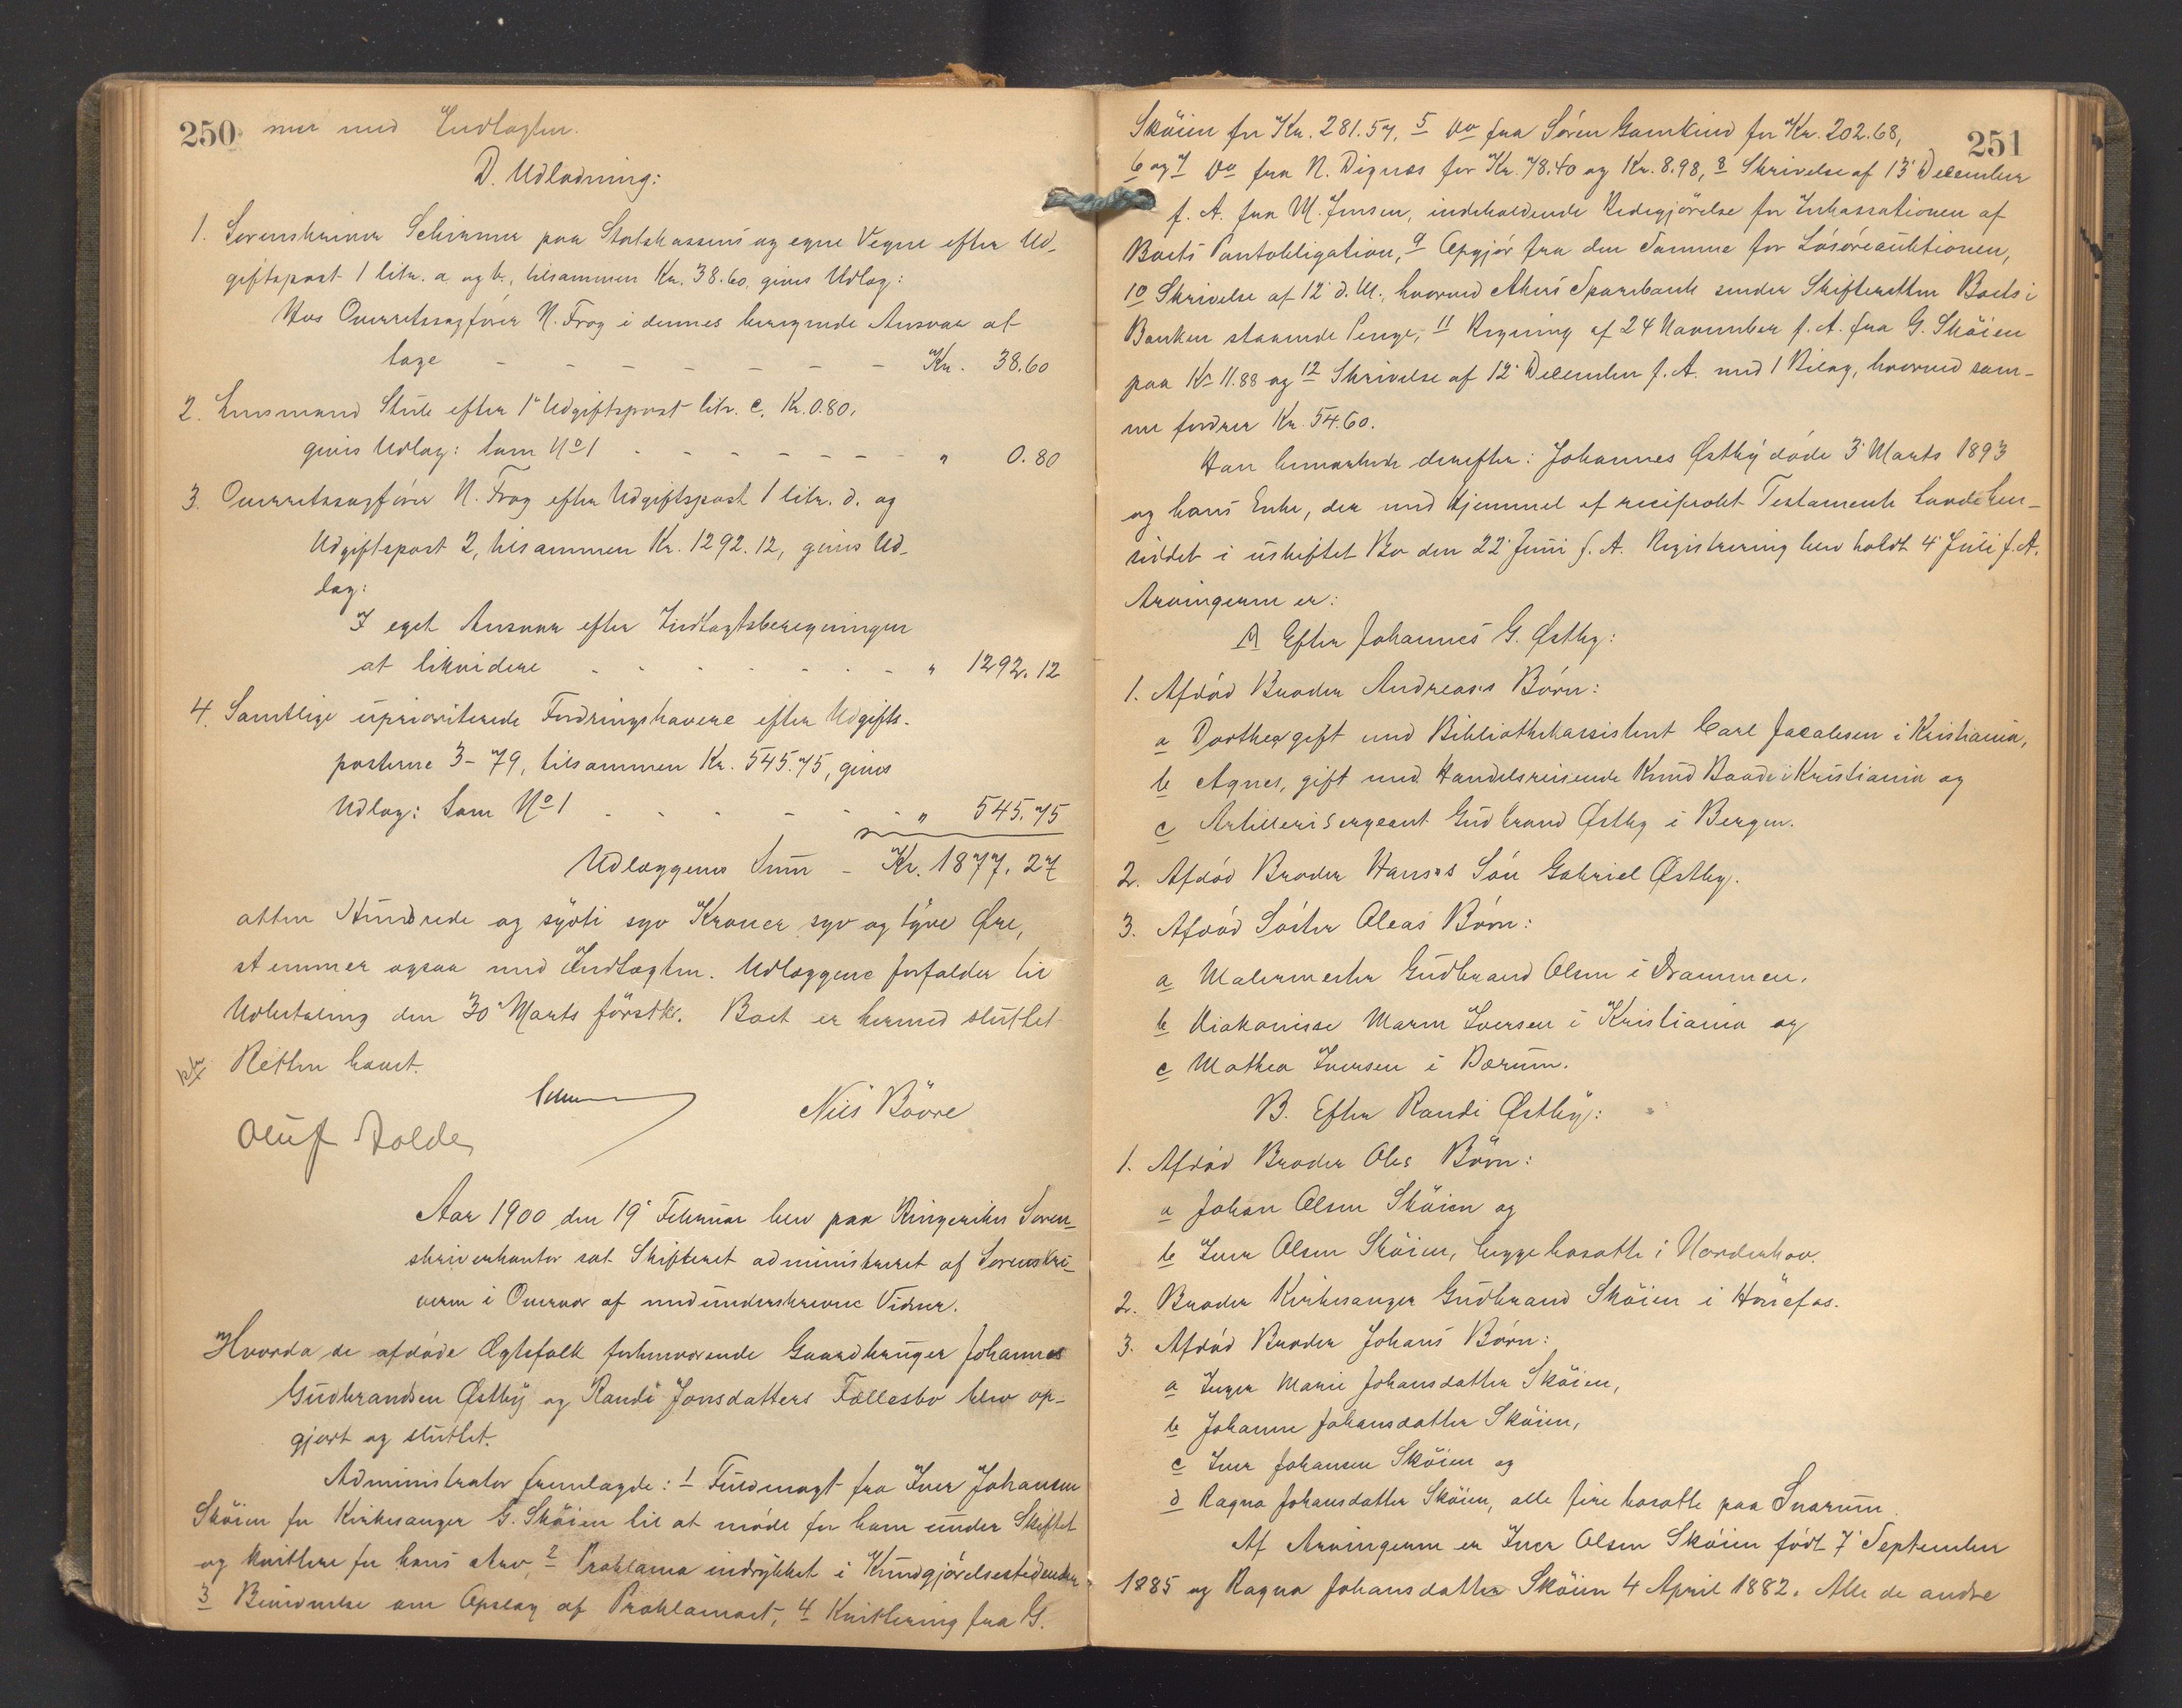 250 mer med Indtægten.
D. Udlodning:
1. Sorenskriver Schirmer paa Statskassens og egne Vegne efter Ud-
giftspost 1 litr. a og b, tilsammen Kr. 38.60, gives Udlæg:
Hos Overretssagfører N. Frog i dennes beregnede Ansvar at
tage - - - - - - - Kr. 38.60
2. Lensmand Stub efter 1ª Udgiftspost litr. c. Kr. 0.80,
gives Udlæg: som No 1 - - - - - - - " 0.80
3. Overretssagfører N. Frog efter Udgiftspost 1 litr. d. og
Udgiftspost 2, tilsammen Kr. 1292.12, gives Ud-
læg:
I eget Ansvar efter Indtægtsberegningen
at likvidere - - - - - - - " 1292.12
4. Samtlige uprioriterede Fordringshavere efter Udgifts-
posterne 3-79, tilsammen Kr. 545.75, gives
Udlæg: Som No 1 - - - - - " 545.75
Udlæggenes Sum - Kr. 1877.27
atten Hundrede og sytti syv Kroner syv og tyve Øre,
stemmer ogsaa med Indtægten. Udlæggene forfalder til
Udbetaling den 30' Marts førstk. Boet er hermed sluttet
Retten hævet.
Schirmer
Nils Bøvre
Oluf Dolde
Aar 1900 den 19' Februar blev paa Ringerikes Soren-
skriverkontor sat Skifteret administreret af Sorenskri-
veren i Overvær af medunderskrevne Vidner.
Hvorda de afdøde Ægtefolk forhenværende Gaardbruger Johannes
Gudbrandsen Østby og Randi Jonsdatters Fællesbo blev op-
gjort og sluttet.
Administrator fremlagde: 1 Fuldmagt fra Iver Johansen
Skøien for Kirkesanger G. Skøien til at møde for ham under Skiftet
og kvittere for hans Arv, 2 Proklama indrykket i Kundgjørelsestidenden
3 Bevidnelse om Opslag af Proklamaet, 4 Kvittering fra G.
251
Skøien for Kr. 281.57, 5 do fra Søren Gamkind for Kr. 202.68,
6 og 7 do fra N. Dignæs for Kr. 78.40 og Kr. 8.98, 8 Skrivelse af 13' December
f. A. fra M. Jensen, indeholdende Redegjørelse for Inkassationen af
Boets Pantobligation, 9 Opgjør fra den Samme for Løsøreauktionen,
10 Skrivelse af 12' d. M., hvorved Akers Sparebank sender Skifteretten Boets i
Banken staaende Penge, 11 Regning af 24 November f. A. fra G. Skøien
paa Kr 11.88 og 12 Skrivelse af 12' December f. A. med 1 Bilag, hvorved sam-
me fordrer Kr. 54.60.
Han bemærkede derefter: Johannes Østby døde 3' Marts 1893
og hans Enke, der med Hjemmel af reciprokt Testamente havde hen-
siddet i uskiftet Bo den 22' Juni f. A. Registrering blev holdt 4' Juli f. A.
Arvingerne er:
A Efter Johannes G. Østby:
1. Afdød Broder Andreas's Børn:
a Dorthea gift med Bibliothekassistent Carl Jacobsen i Kristiania,
b Agnes, gift med Handelsreisende Knud Baade i Kristiania og
c Artilleri Sergeant Gudbrand Østby i Bergen.
2. Afdød Broder Hans's Søn Gabriel Østby.
3. Afdød Søster Oleas Børn:
a Malermester Gudbrand Olsen i Drammen,
b Diakonisse Maren Iversen i Kristiania og
c Mathea Iversen i Bærum.
B. Efter Randi Østby:
1. Afdød Broder Oles Børn:
a Johan Olsen Skøien og
b Iver Olsen Skøien, begge bosatte i Norderhov.
2. Broder Kirkesanger Gudbrand Skøien i Hønefos.
3. Afdød Broder Johans Børn:
a Inger Marie Johansdatter Skøien,
b Johanne Johansdatter Skøien,
c Iver Johansen Skøien og
d Ragna Johansdatter Skøien, alle fire bosatte paa Snarum.
Af Arvingerne er Iver Olsen Skøien født 7' September
1885 og Ragna Johansdatter Skøien 4 April 1882. Alle de andre